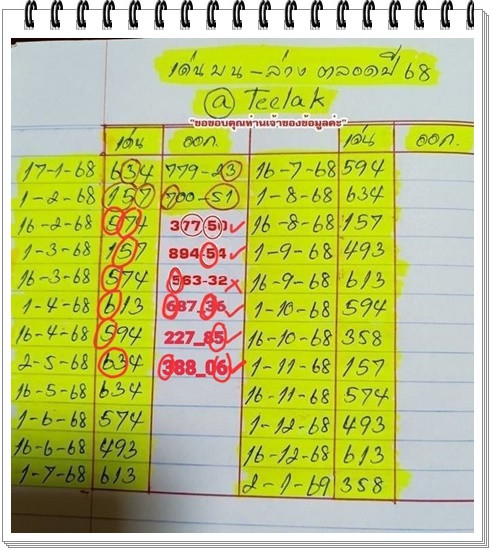 เด่นบน-ล่าง ตลอดปี 68
@ Teelak
"ขอขอบคุณท่านเจ้าของข้อมูลค่ะ"
เด่น ออก. เด่น ออก.
17-1-68 634 779-23 16-7-68 594
1-2-68 157 700-51 1-8-68 634
16-2-68 574 377-50 16-8-68 157
1-3-68 157 894-54 1-9-68 493
16-3-68 574 563-32 16-9-68 613
1-4-68 613 687_36 1-10-68 594
16-4-68 594 227_85 16-10-68 358
2-5-68 634 388_06 1-11-68 157
16-5-68 634 16-11-68 574
1-6-68 574 1-12-68 493
16-6-68 493 16-12-68 613
1-7-68 613 2-1-69 358